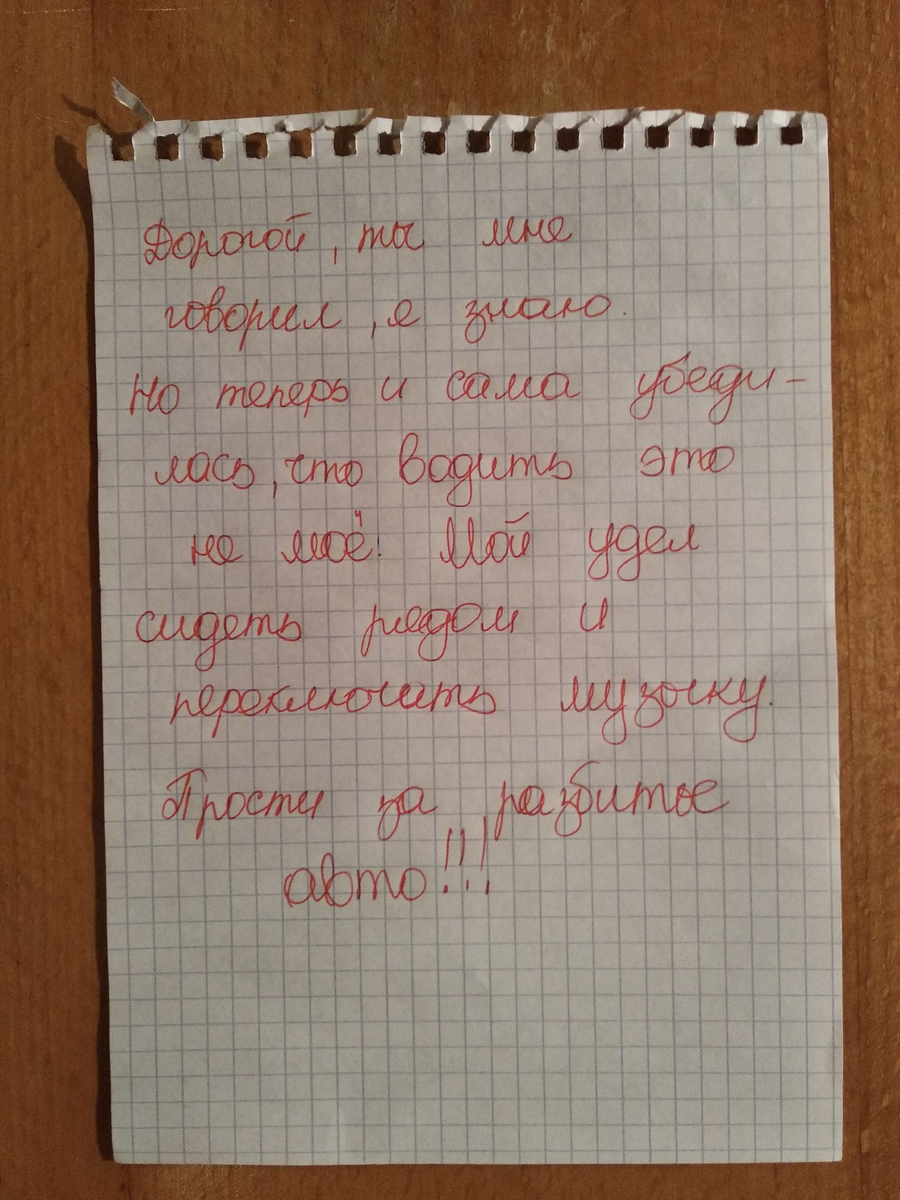 Дорогой, ты мне
говорил, я знаю.
Но теперь и сама убеди-
лась, что водить это
не моё! Мой удел
сидеть рядом и
переключать музыку.
Прости за разбитое
авто!!!